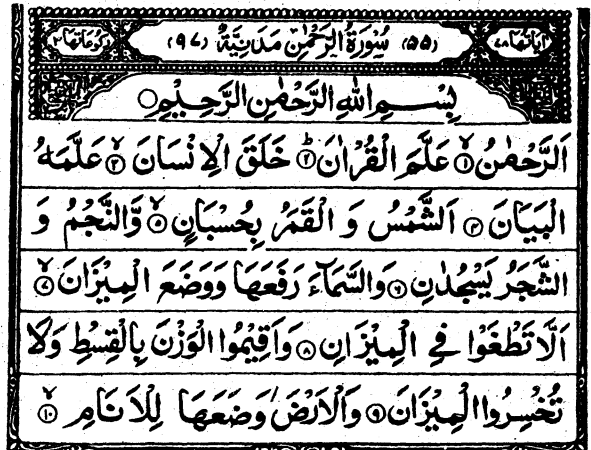 اٰيَاتُهَا ٧٨ (٥٥) سُوْرَةُ الرَّحْمٰنِ مَدَنِيَّةٌ (٩٧) رُكُوْعَاتُهَا ٣
بِسْمِ اللّٰهِ الرَّحْمٰنِ الرَّحِيْمِ ○
اَلرَّحْمٰنُ ۙ﴿١﴾ عَلَّمَ الْقُرْاٰنَ ؕ﴿٢﴾ خَلَقَ الْاِنْسَانَ ۙ﴿٣﴾ عَلَّمَهُ
الْبَيَانَ ﴿٤﴾ اَلشَّمْسُ وَ الْقَمَرُ بِحُسْبَانٍ ۙ﴿٥﴾ وَّالنَّجْمُ وَ
الشَّجَرُ يَسْجُدٰنِ ﴿٦﴾ وَالسَّمَآءَ رَفَعَهَا وَوَضَعَ الْمِيْزَانَ ۙ﴿٧﴾
اَلَّا تَطْغَوْا فِي الْمِيْزَانِ ﴿٨﴾ وَاَقِيْمُوا الْوَزْنَ بِالْقِسْطِ وَلَا
تُخْسِرُوا الْمِيْزَانَ ﴿٩﴾ وَالْاَرْضَ وَضَعَهَا لِلْاَنَامِ ۙ﴿١٠﴾